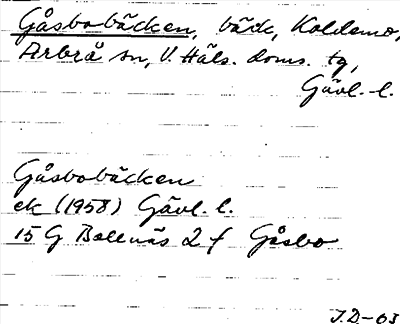 Gåsbobäcken, bäck, Koldemo,
Arbrå sn, V. Häls. doms. tg,
Gävl. l.
Gåsbobäcken
ek (1958) Gävl. l.
15 G Bollnäs 2 f Gåsbo
J.D-63